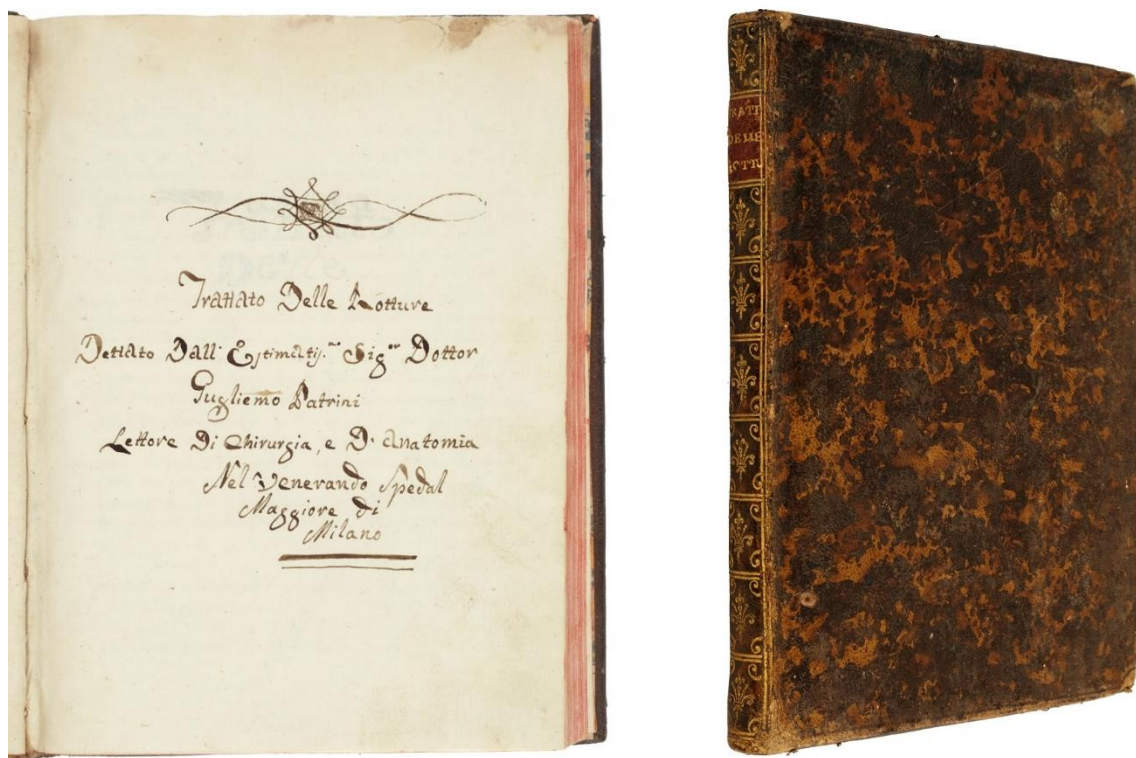 Trattato Delle Rotture
Dettato Dall' Estimatis.mo Sig.or Dottor
Gugliemo Patrini
Lettore Di Chirurgia, e D'Anatomia
Nel Venerando Spedal
Maggiore di
Milano